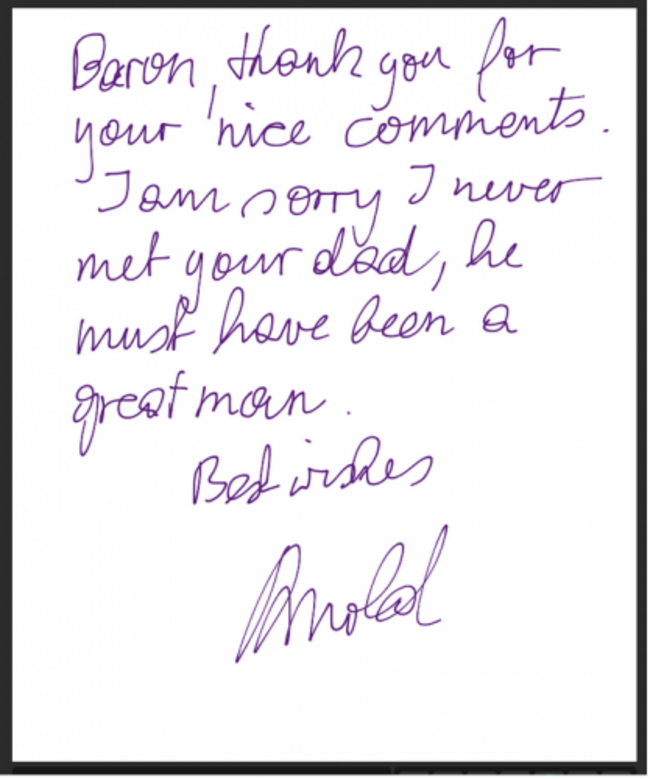 Baron, thank you for
your nice comments.
I am sorry I never
met your dad, he
must have been a
great man.
Best wishes
Arnold